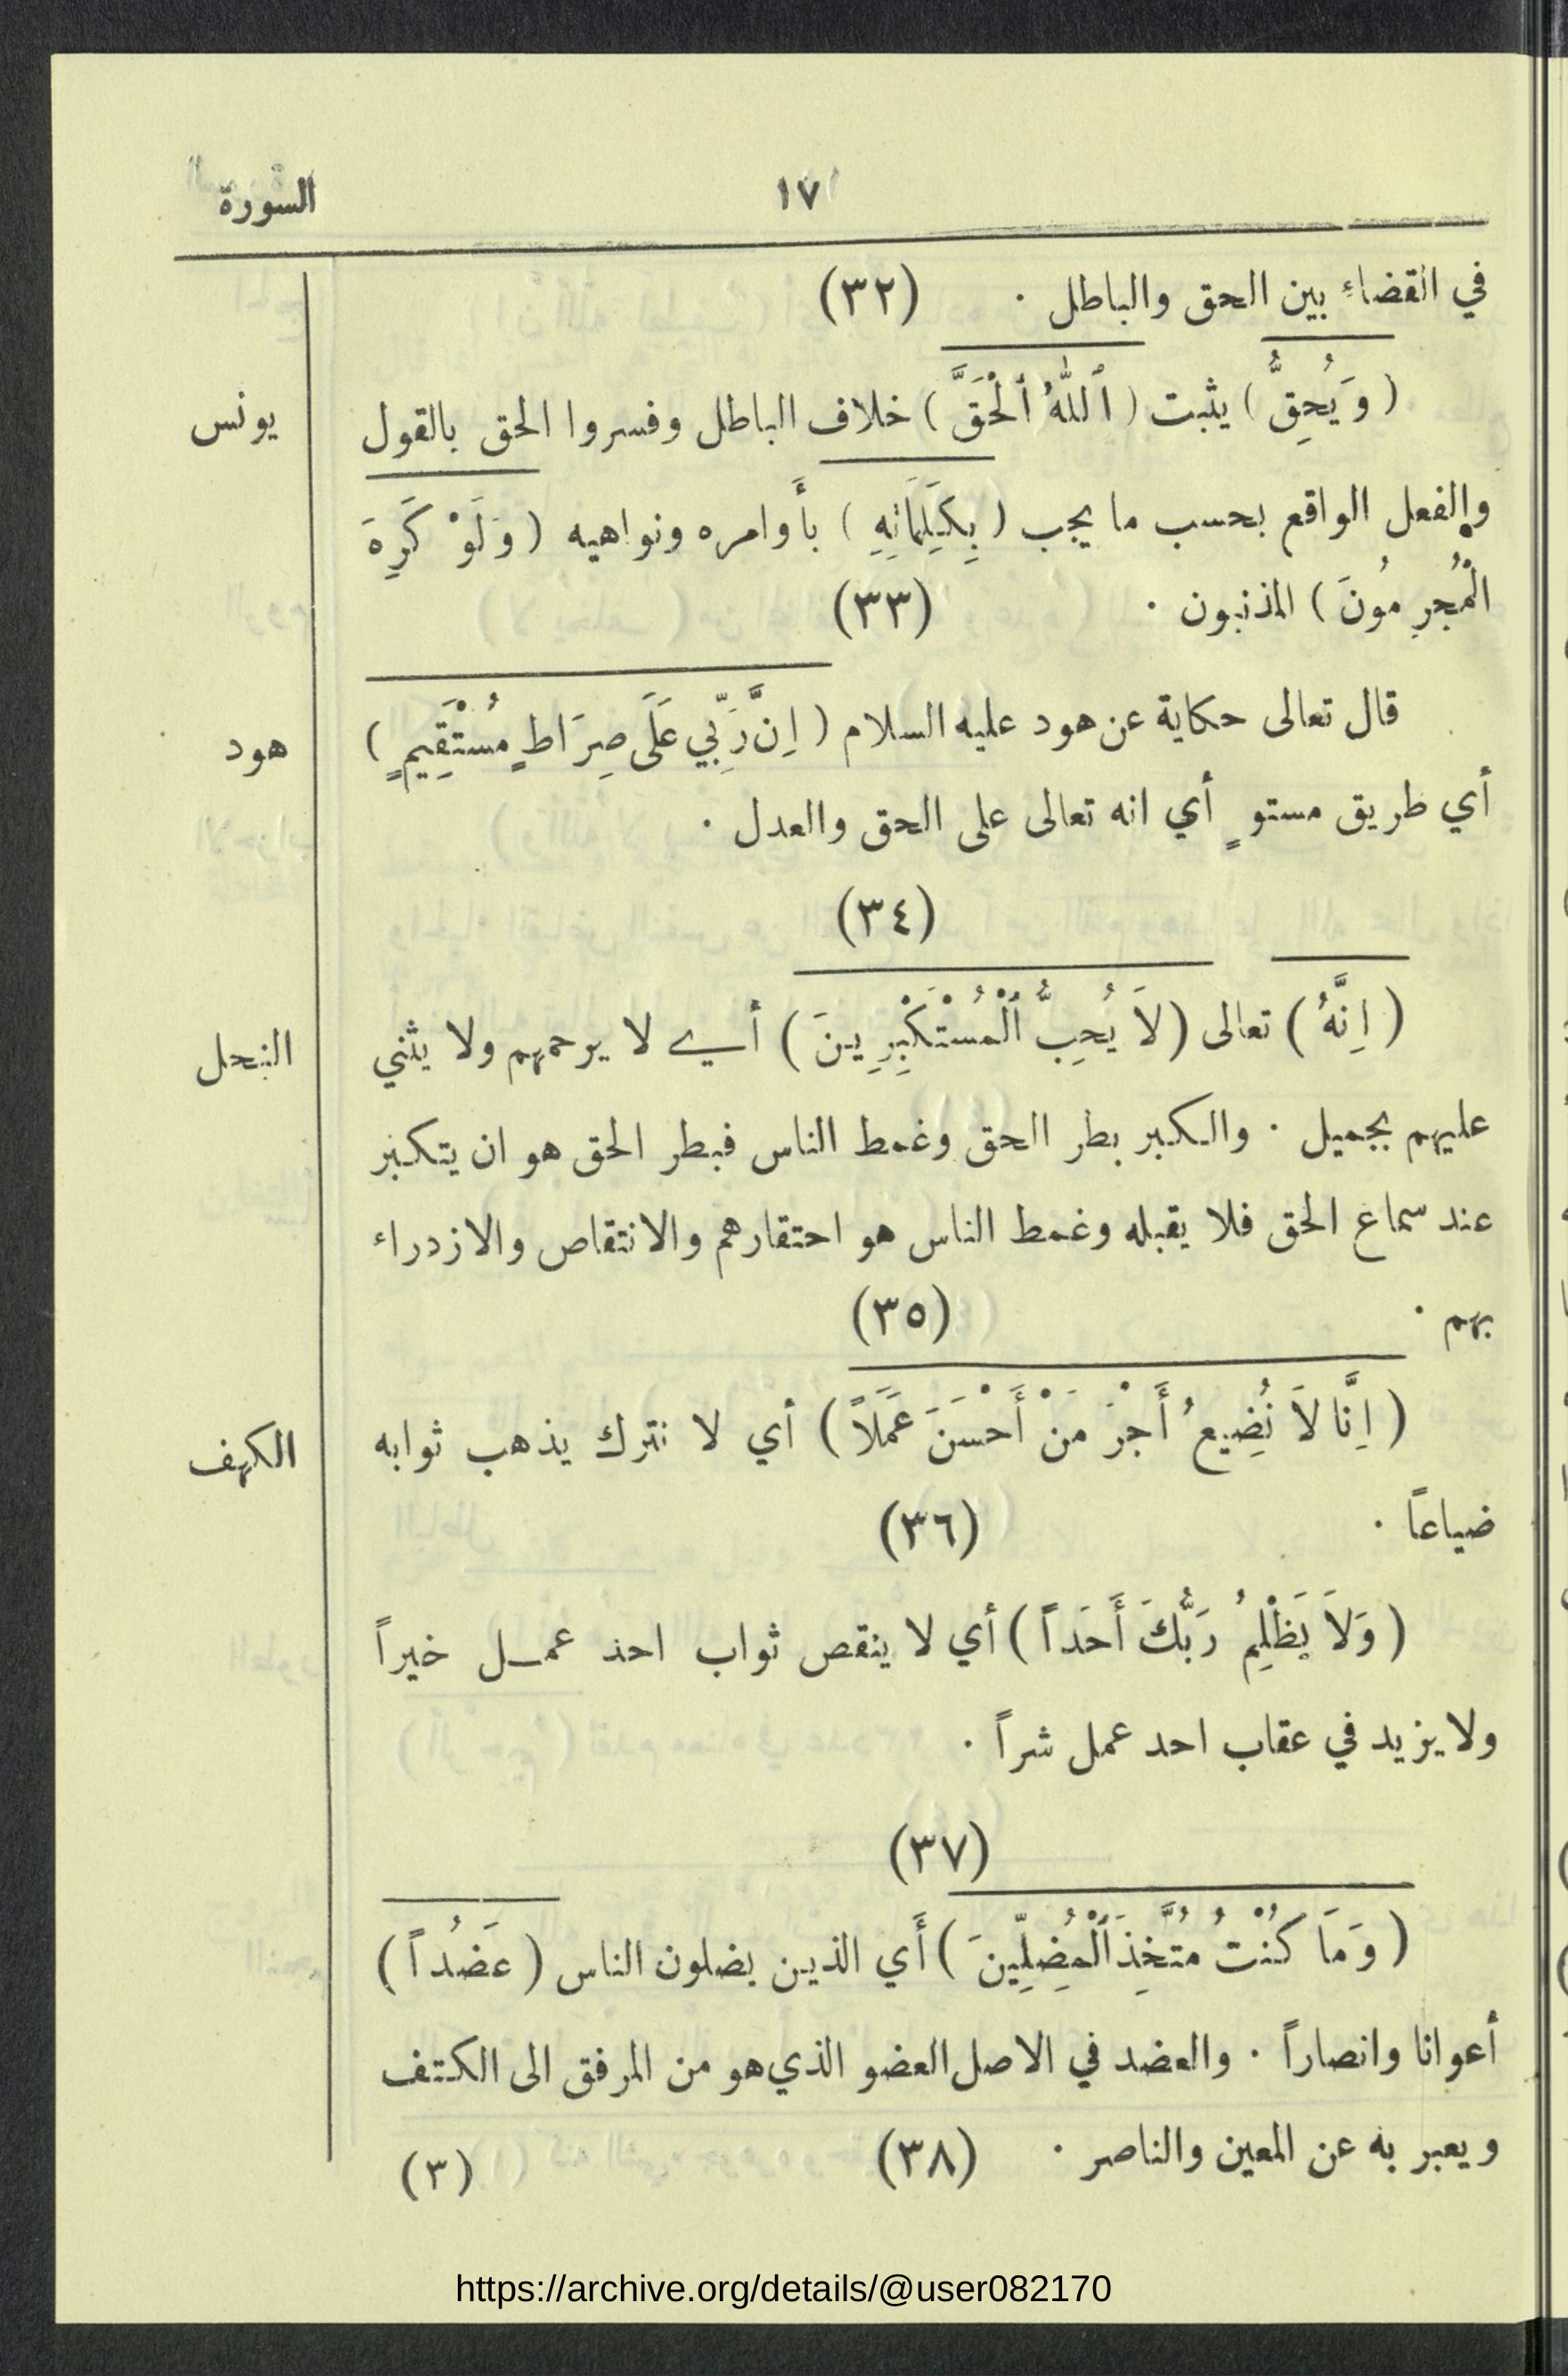 السورة ١٧
في القضاء بين الحق والباطل . (٣٢)
يونس
( وَيُحِقُّ ) يثبت ( ٱللّٰهُ ٱلْحَقَّ ) خلاف الباطل وفسروا الحق بالقول
والفعل الواقع بحسب ما يجب ( بِكَلِمَاتِهِ ) بأوامره ونواهيه ( وَلَوْ كَرِهَ
الْمُجْرِمُونَ ) المذنبون . (٣٣)
هود
قال تعالى حكاية عن هود عليه السلام ( إِنَّ رَبِّي عَلَى صِرَاطٍ مُسْتَقِيمٍ )
أي طريق مستوٍ أي انه تعالى على الحق والعدل .
(٣٤)
النحل
( إِنَّهُ ) تعالى ( لاَ يُحِبُّ ٱلْمُسْتَكْبِرِينَ ) أي لا يرحمهم ولا يثني
عليهم بجميل . والكبر بطر الحق وغمط الناس فبطر الحق هو ان يتكبر
عند سماع الحق فلا يقبله وغمط الناس هو احتقارهم والانتقاص والازدراء
بهم . (٣٥)
الكهف
( إِنَّا لاَ نُضِيعُ أَجْرَ مَنْ أَحْسَنَ عَمَلاً ) أي لا نترك يذهب ثوابه
ضياعاً . (٣٦)
( وَلاَ يَظْلِمُ رَبُّكَ أَحَداً ) أي لا ينقص ثواب احد عمل خيراً
ولا يزيد في عقاب احد عمل شراً .
(٣٧)
( وَمَا كُنْتُ مُتَّخِذَ ٱلْمُضِلِّينَ ) أَي الذين يضلون الناس ( عَضُداً )
أعوانا وانصاراً . والعضد في الاصل العضو الذي هو من المرفق الى الكتف
ويعبر به عن المعين والناصر . (٣٨) (٣)
https://archive.org/details/@user082170